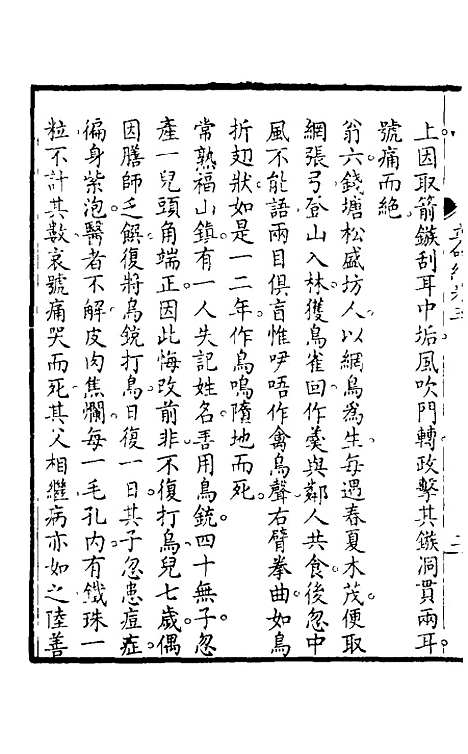 上因取箭鏃刮耳中垢風吹門轉政擊其鏃洞貫兩耳
號痛而絕
翁六錢塘松盛坊人以網鳥為生每遇春夏木茂便取
網張弓登山入林獲鳥雀回作羹與鄰人共食後忽中
風不能語兩目俱盲惟咿唔作禽鳥聲右臂拳曲如鳥
折翅狀如是一二年作鳥鳴隕地而死
常熟福山鎮有一人失記姓名善用鳥銃四十無子忽
產一兒頭角端正因此悔改前非不復打鳥兒七歲偶
因膳師乏饌復將鳥銃打鳥日復一日其子忽患痘症
徧身紫泡醫者不解皮肉焦爛每一毛孔內有鐵珠一
粒不計其數哀號痛哭而死其父相繼病亦如之陸善